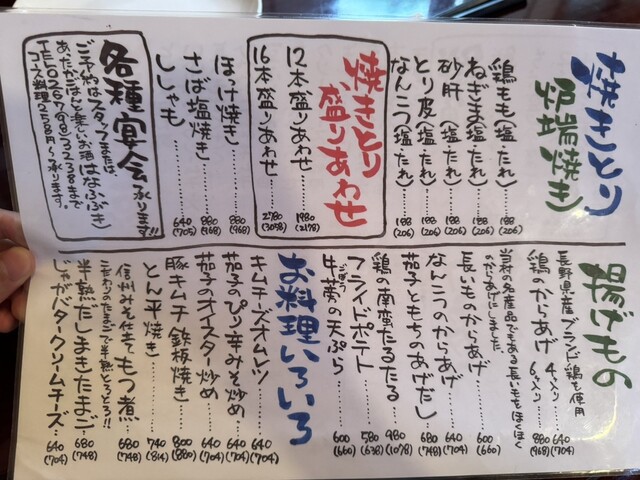 焼きとり
溶岩焼き
鶏もも(塩 たれ)……188(206)
ねぎま(塩 たれ)……188(206)
砂肝(塩 たれ)……188(206)
とり皮(塩 たれ)……188(206)
なんこつ(塩 たれ)……188(206)
焼きとり
盛りあわせ
12本盛りあわせ……1980(2178)
16本盛りあわせ……2780(3058)
ほっけ焼き……880(968)
さば塩焼き……880(968)
ししゃも……640(705)
各種宴会承ります!!
ご予約はスタッフまたは、
あたたかごはんと楽しいお酒 はなぶき
TEL0267(98)3238まで
コース料理2538円〜承ります。
揚げもの
長野県産ブランド鶏を使用
鶏のからあげ 4ヶ入り……640(704)
6ヶ入り……880(968)
当村の名産品でもある長いもをほくほく
のからあげにしました
長いものからあげ……600(660)
なんこつのからあげ……640(704)
茄子ともちのあげだし……680(748)
鶏の南蛮たるたる……980(1078)
フライドポテト……580(638)
牛蒡の天ぷら……600(660)
ごぼう
お料理いろいろ
キムチーズオムレツ……640(704)
茄子のぴり辛みそ炒め……640(704)
茄子のオイスター炒め……640(704)
豚キムチ鉄板焼き……800(880)
とん平焼き……740(814)
信州みそ仕立てもつ煮……680(748)
こだわりのたまごで半熟とろとろ!!
半熟だしまきたまご……680(748)
じゃがバタークリームチーズ……640(704)